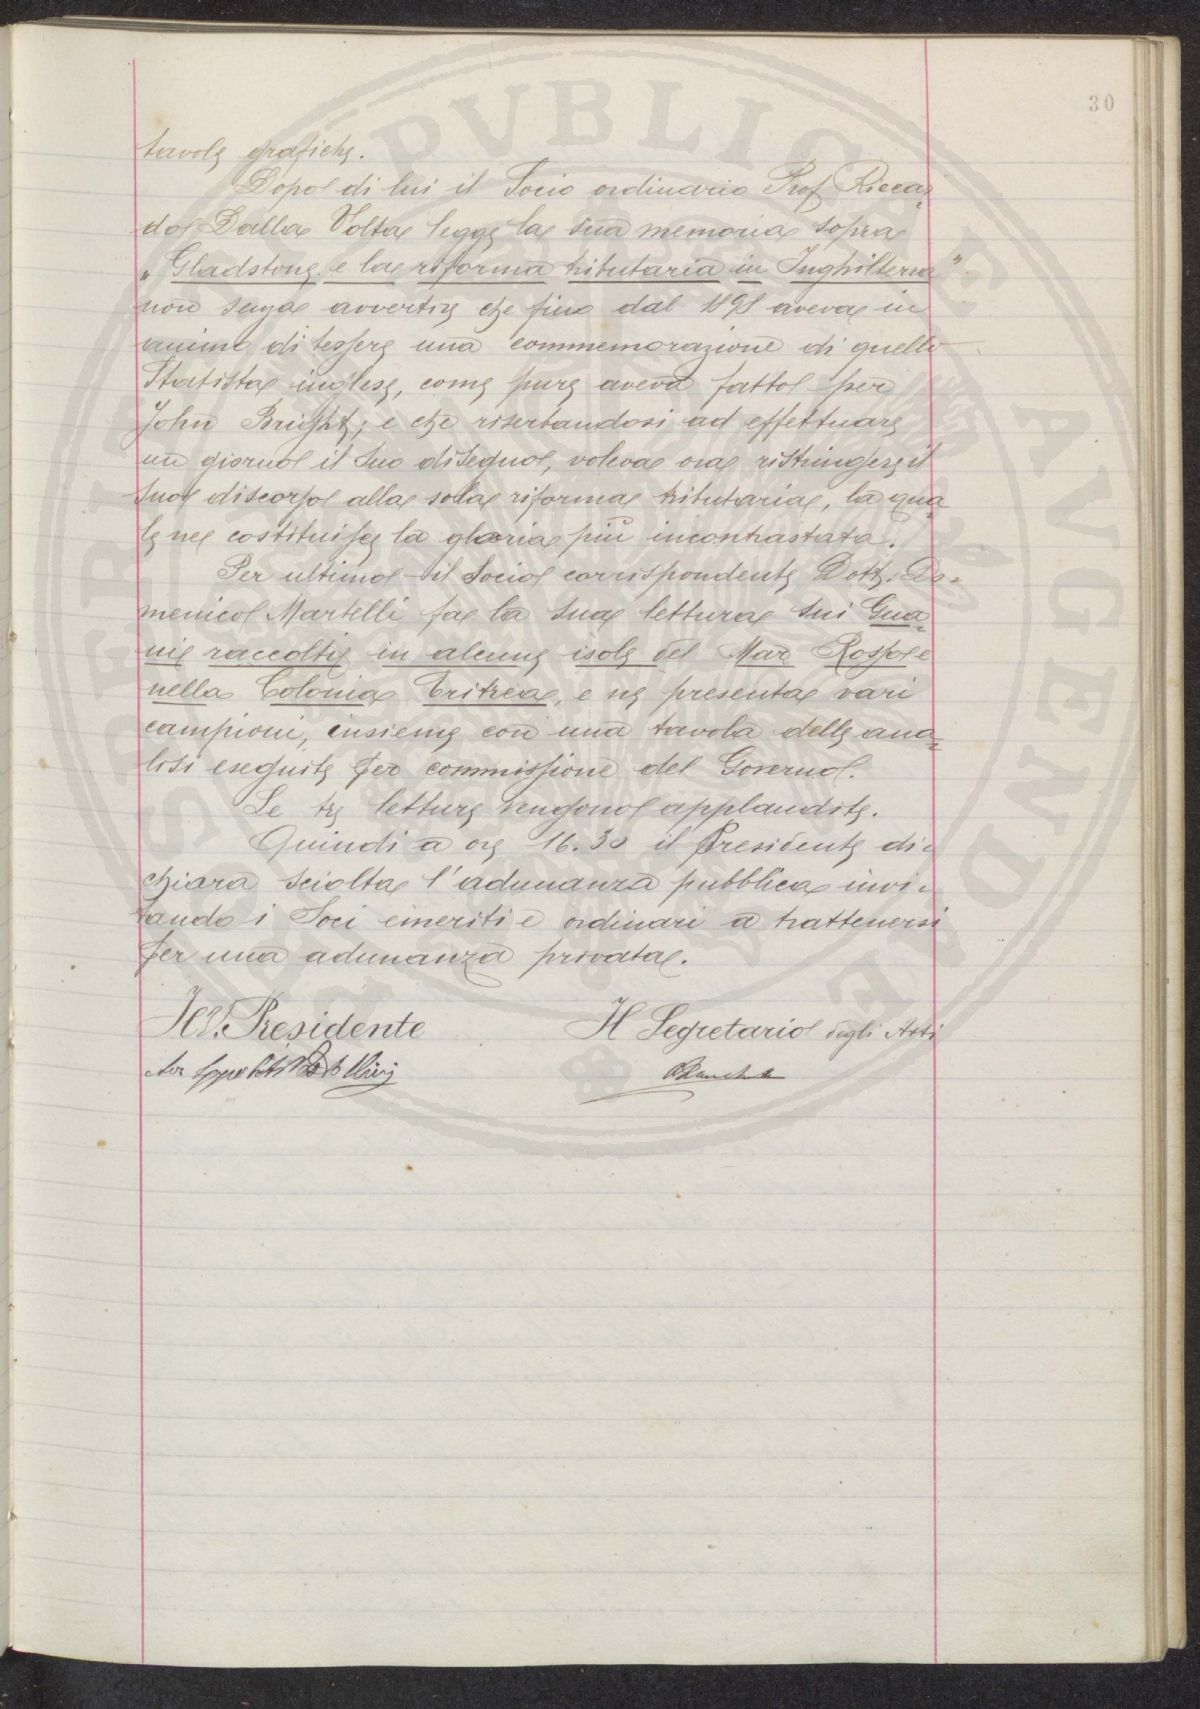 30
tavole grafiche.
Dopo di lui il Socio ordinario Prof. Riccar-
do Dalla Volta legge la sua memoria sopra
„Gladstone e la riforma tributaria in Inghilterra"
non senza avvertire che fino dal 1898 aveva in
animo di tessere una commemorazione di quello
Statista inglese, come pure aveva fatto per
John Bright; e che riserbandosi ad effettuare
un giorno il suo disegno, voleva ora ristringere il
suo discorso alla sola riforma tributaria, la qua
le ne costituisce la gloria più incontrastata.
Per ultimo il Socio corrispondente Dott. Do-
menico Martelli fa la sua lettura sui Gua-
ni raccolti in alcune isole del Mar Rosso e
nella Colonia Eritrea, e ne presenta vari
campioni, insieme con una tavola delle ana-
lisi eseguite per commissione del Governo.
Le tre letture vengono applaudite.
Quindi a ore 16.30 il Presidente di-
chiara sciolta l'adunanza pubblica invi-
tando i Soci emeriti e ordinari a trattenersi
per una adunanza privata.
Il V. Presidente
Il Segretario degli Atti
PVBLICAE
PROSPERITATI
AVGENDAE